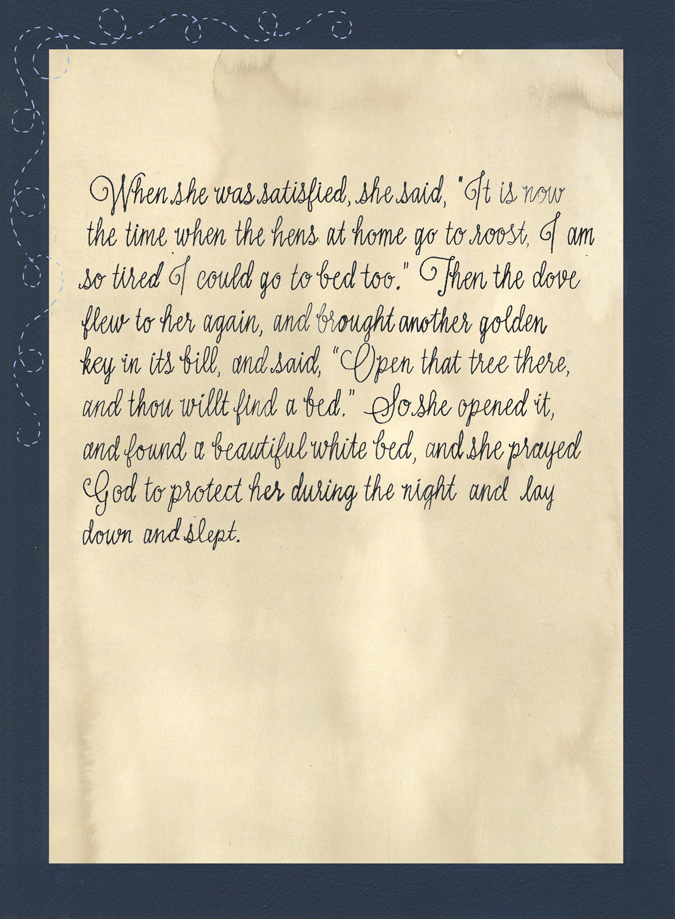 When she was satisfied, she said, "It is now
the time when the hens at home go to roost, I am
so tired I could go to bed too." Then the dove
flew to her again, and brought another golden
key in its bill, and said, "Open that tree there,
and thou willt find a bed." So she opened it,
and found a beautiful white bed, and she prayed
God to protect her during the night and lay
down and slept.